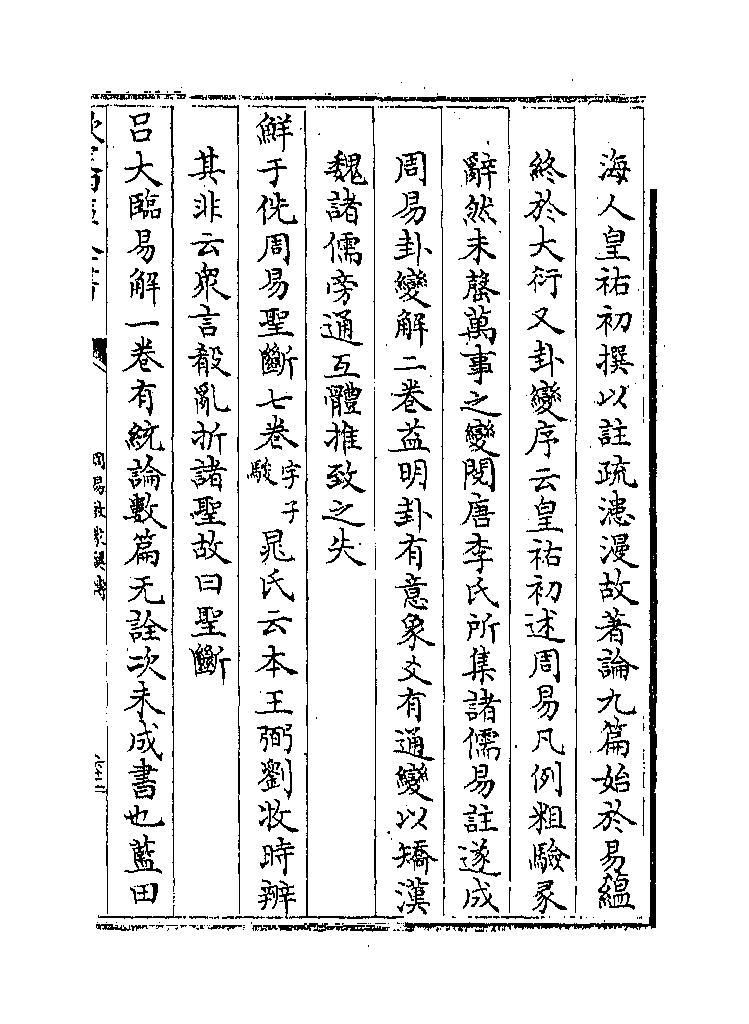 海人皇祐初撰以註疏漶漫故著論九篇始於易蘊
終於大衍又卦變序云皇祐初述周易凡例粗驗彖
辭然未罄萬事之變閱唐李氏所集諸儒易註遂成
周易卦變解二卷益明卦有意象爻有通變以矯漢
魏諸儒旁通互體推致之失
鮮于侁周易聖斷七卷字子駿 晁氏云本王弼劉牧時辨
其非云衆言殽亂折諸聖故曰聖斷
呂大臨易解一卷有統論數篇无詮次未成書也藍田